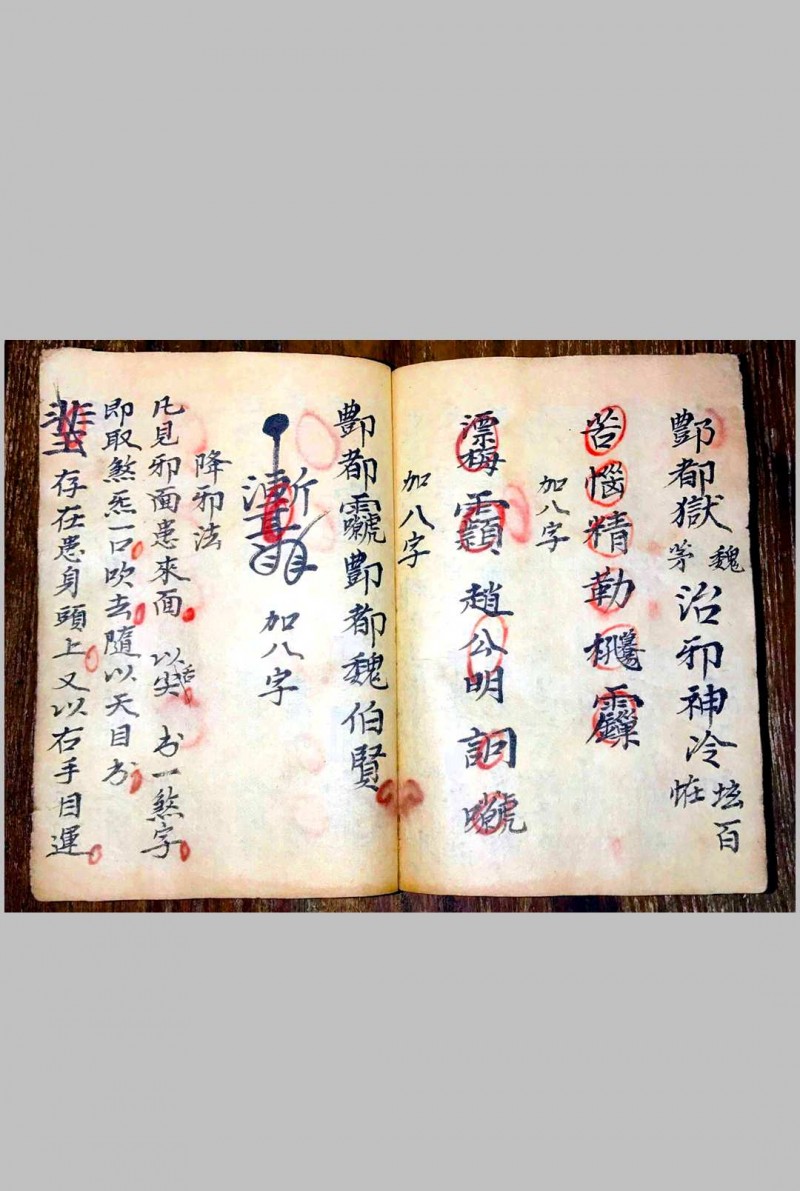 酆都獄 魏茅 治邪神冷坛百怪
苦惱精勒
加八字
漂梅 趙公明
加八字
酆都 酆都魏伯賢
加八字
降邪法
凡見邪面患來面以舌尖书一煞字
即取煞炁一口吹去隨以天目书
存在患身頭上又以右手目運